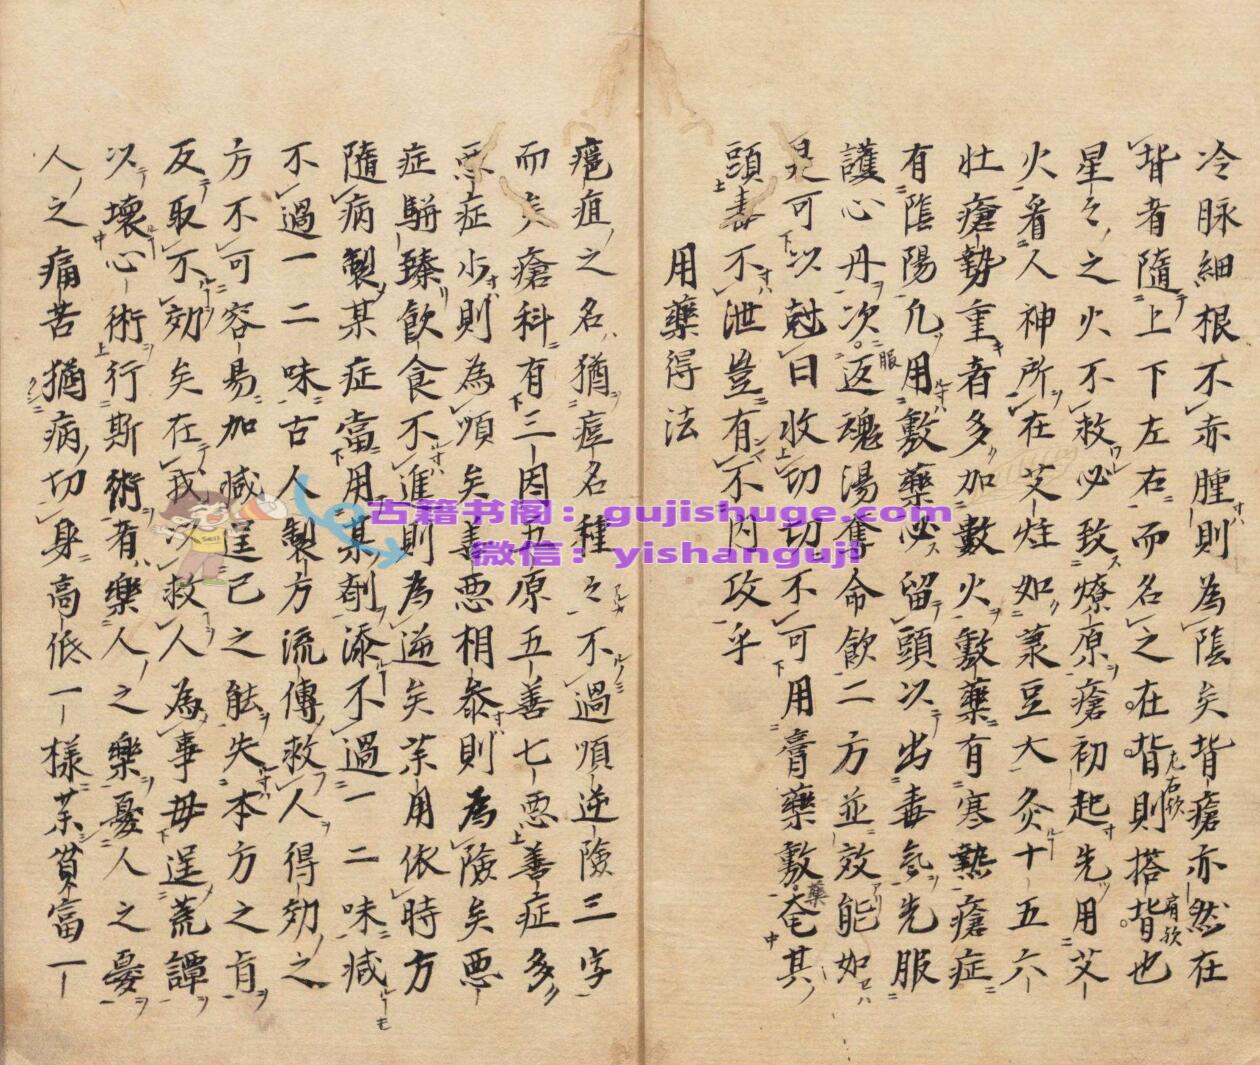 冷脉細根不赤腫則為陰矣背瘡亦然在
背者隨上下左右而名之在背則搭背也
星之火不救必致燎原瘡初起先用艾
火看人神所在艾炷如菉豆大灸十五六
壯瘡勢重者多加數火敷藥有寒熱瘡症
有陰陽凡用敷藥必留頭以出毒氣先服
護心丹次返魂湯奪命飲二方並效能如
是可以尅日收切切不可用膏藥敷奄其
頭毒不泄豈有不内攻乎
用藥得法
瘡疽之名猶痘名種之不過順逆險三字
而矣瘡科有三因五原五善七惡善症多
惡症少則為順矣善惡相參則為險矣惡
症駢臻飲食不進則為逆矣茶用依時方
隨病製某症當用某劑添不過一二味減
不過一二味古人製方流傳救人得効之
方不可容易加減逞己之能失本方之旨
反取不効矣在我以救人為事毋逞荒譚
以壞心術行斯術者樂人之樂憂人之憂
人之痛苦猶病切身高低一樣茶貧富一
古籍书阁：gujishuge.com
微信：yishanguji